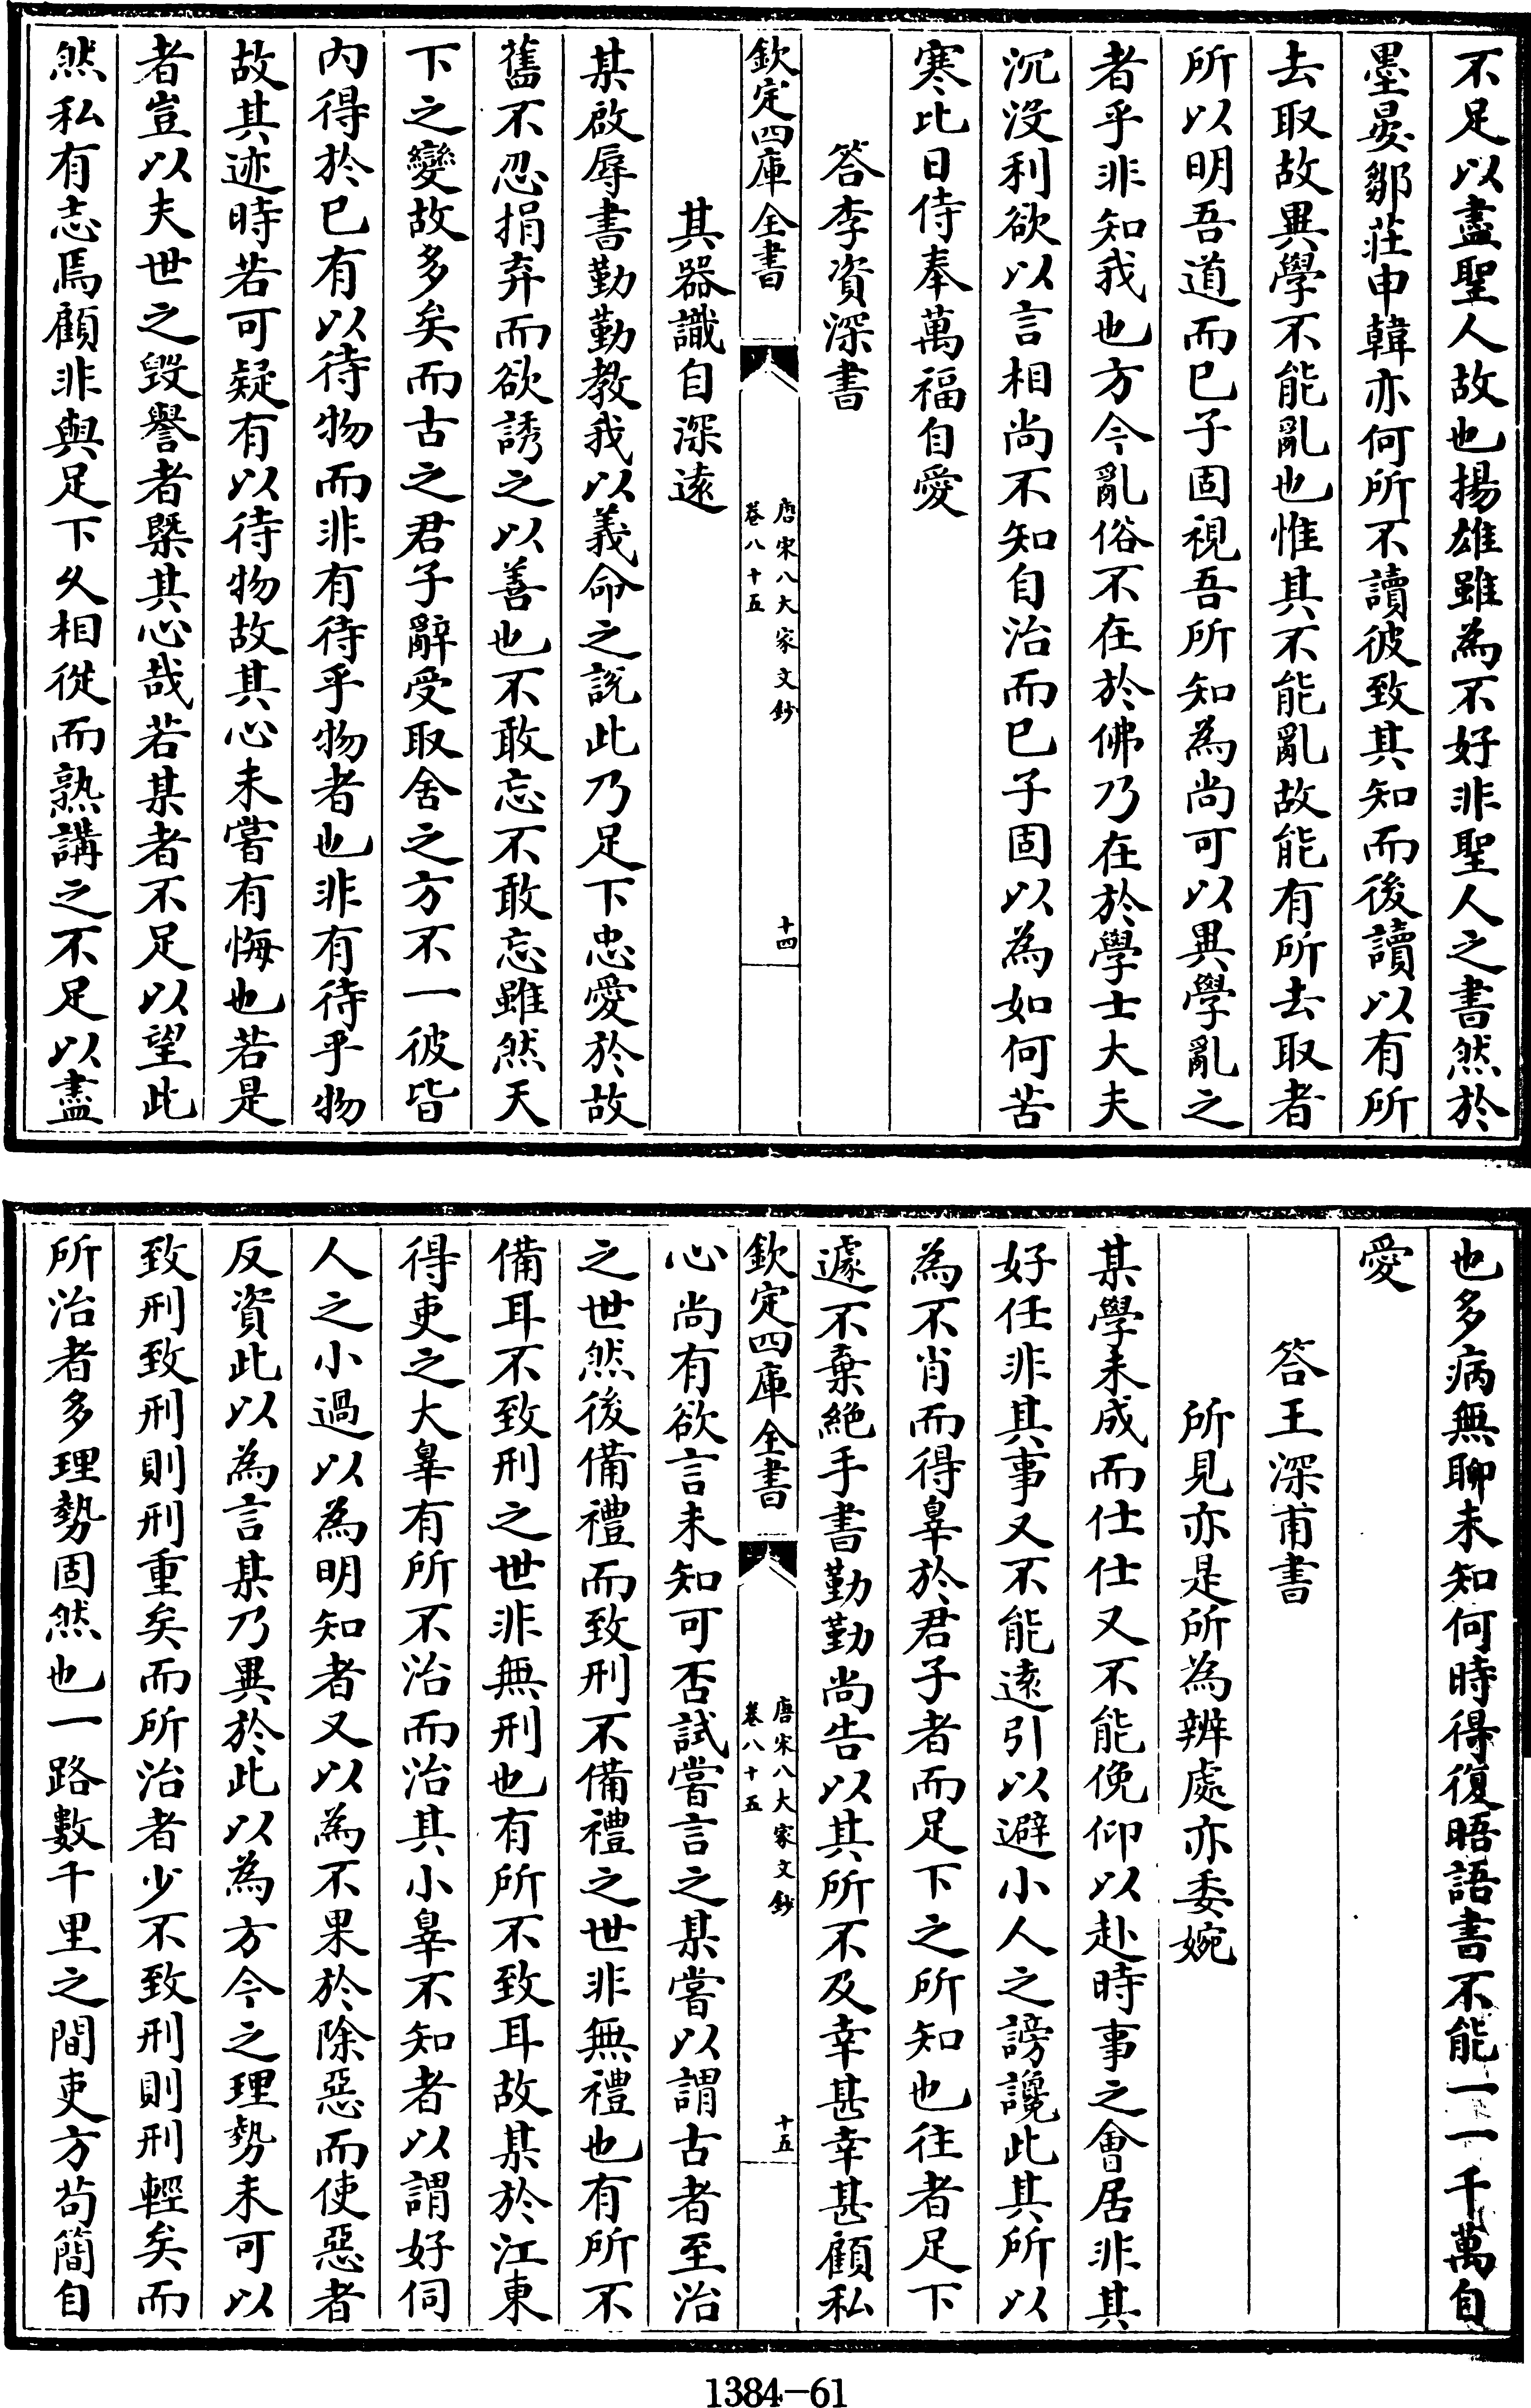 不足以盡聖人故也揚雄雖為不好非聖人之書然於
墨晏鄒莊申韓亦何所不讀彼致其知而後讀以有所
去取故異學不能亂也惟其不能亂故能有所去取者
所以明吾道而已子固視吾所知為尚可以異學亂之
者乎非知我也方今亂俗不在於佛乃在於學士大夫
沉沒利欲以言相尚不知自治而已子固以為如何苦
寒比日侍奉萬福自愛
答李資深書
欽定四庫全書
唐宋八大家文鈔
卷八十五
十四
其器識自深遠
某啟辱書勤勤教我以義命之說此乃足下忠愛於故
舊不忍捐弃而欲誘之以善也不敢忘不敢忘雖然天
下之變故多矣而古之君子辭受取舍之方不一彼皆
内得於已有以待物而非有待乎物者也非有待乎物
故其迹時若可疑有以待物故其心未嘗有悔也若是
者豈以夫世之毀譽者槩其心哉若某者不足以望此
然私有志焉顧非與足下久相從而熟講之不足以盡
也多病無聊未知何時得復晤語書不能一一千萬自
愛
答王深甫書
所見亦是所為辨處亦委婉
某學未成而仕仕又不能俛仰以赴時事之會居非其
好任非其事又不能遠引以避小人之謗讒此其所以
為不肖而得辠於君子者而足下之所知也往者足下
遽不棄絕手書勤勤尚告以其所不及幸甚幸甚顧私
欽定四庫全書
唐宋八大家文鈔
卷八十五
十五
心尚有欲言未知可否試嘗言之某嘗以謂古者至治
之世然後備禮而致刑不備禮之世非無禮也有所不
備耳不致刑之世非無刑也有所不致耳故某於江東
得吏之大辠有所不治而治其小辠不知者以謂好伺
人之小過以為明知者又以為不果於除惡而使惡者
反資此以為言某乃異於此以為方今之理勢未可以
致刑致刑則刑重矣而所治者少不致刑則刑輕矣而
所治者多理勢固然也一路數千里之間吏方茍簡自
1384-61